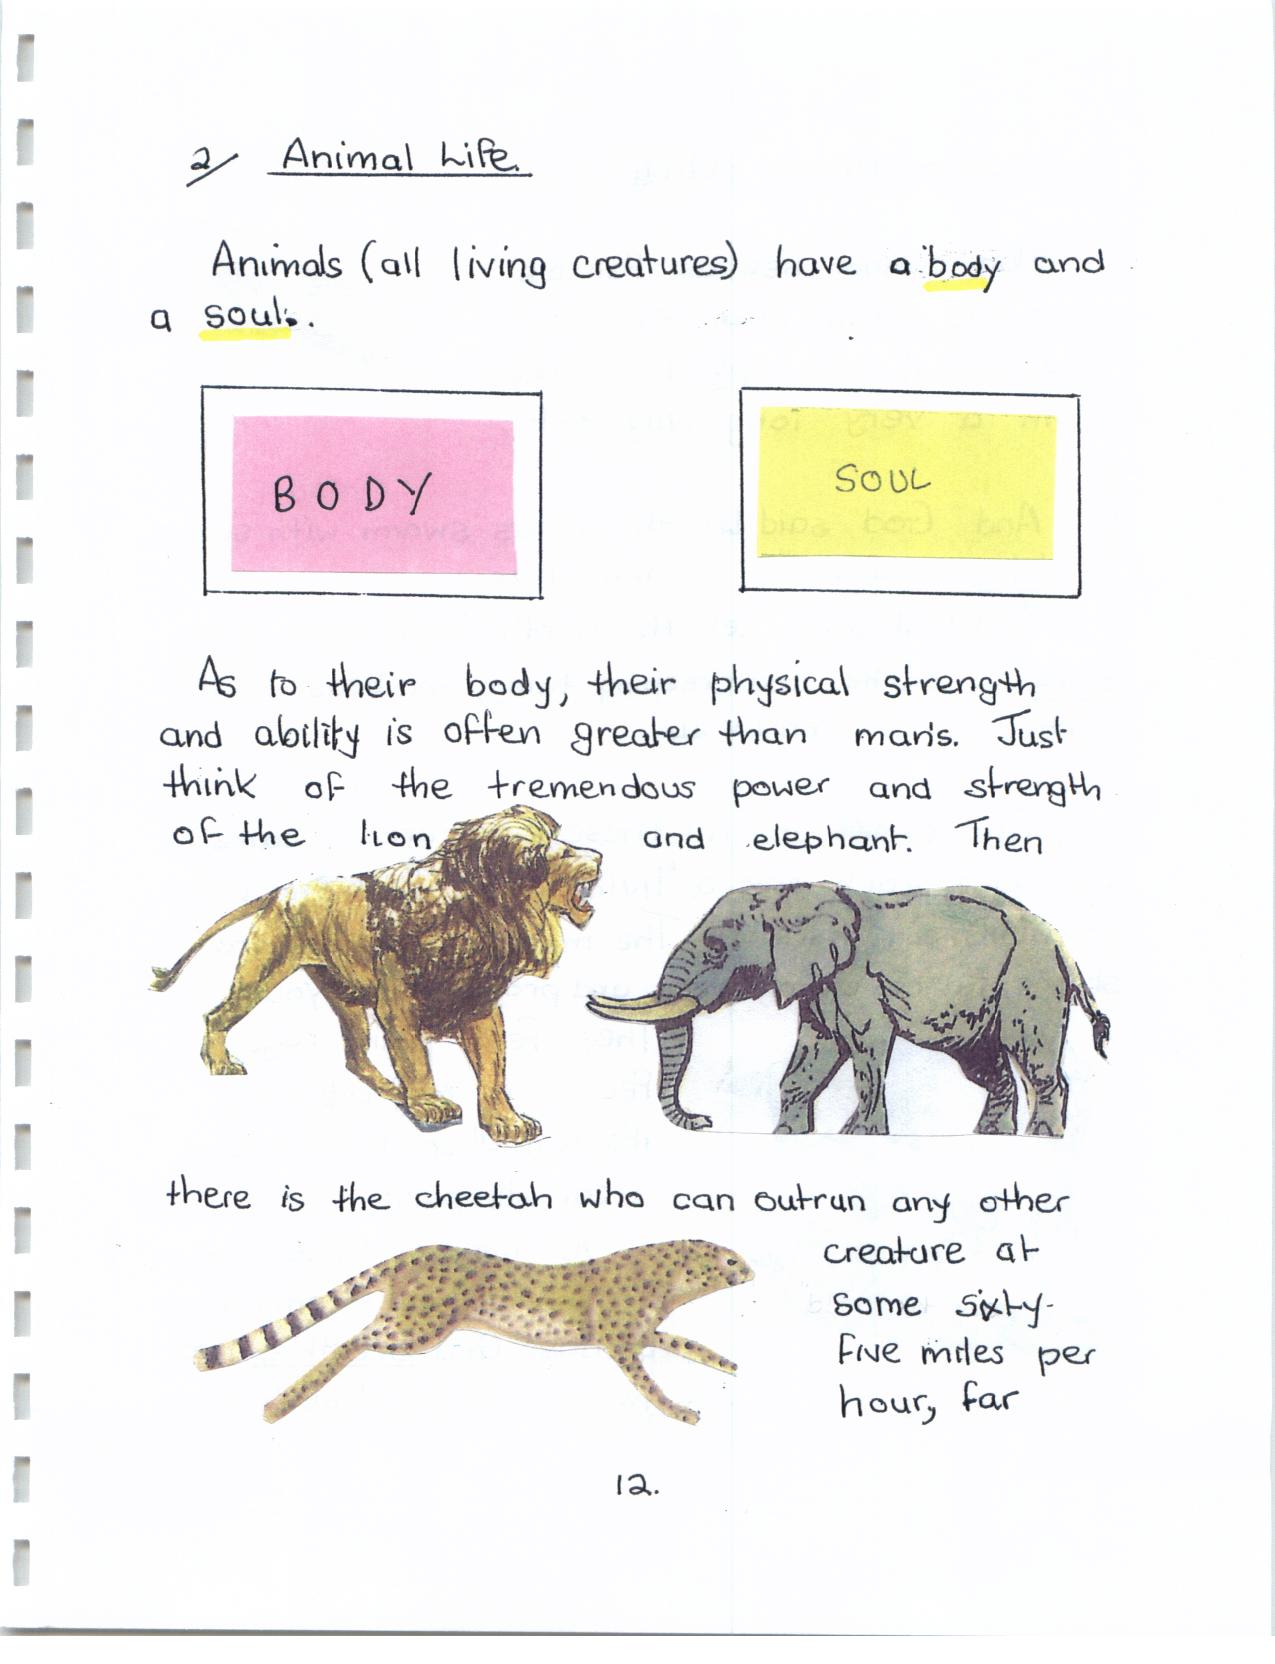 2/ Animal Life.
Animals (all living creatures) have a body and
a soul.
BODY
SOUL
As to their body, their physical strength
and ability is often greater than man's. Just
think of the tremendous power and strength
of the lion and elephant. Then
there is the cheetah who can outrun any other
creature at
some sixty-
five miles per
hour, far
12.